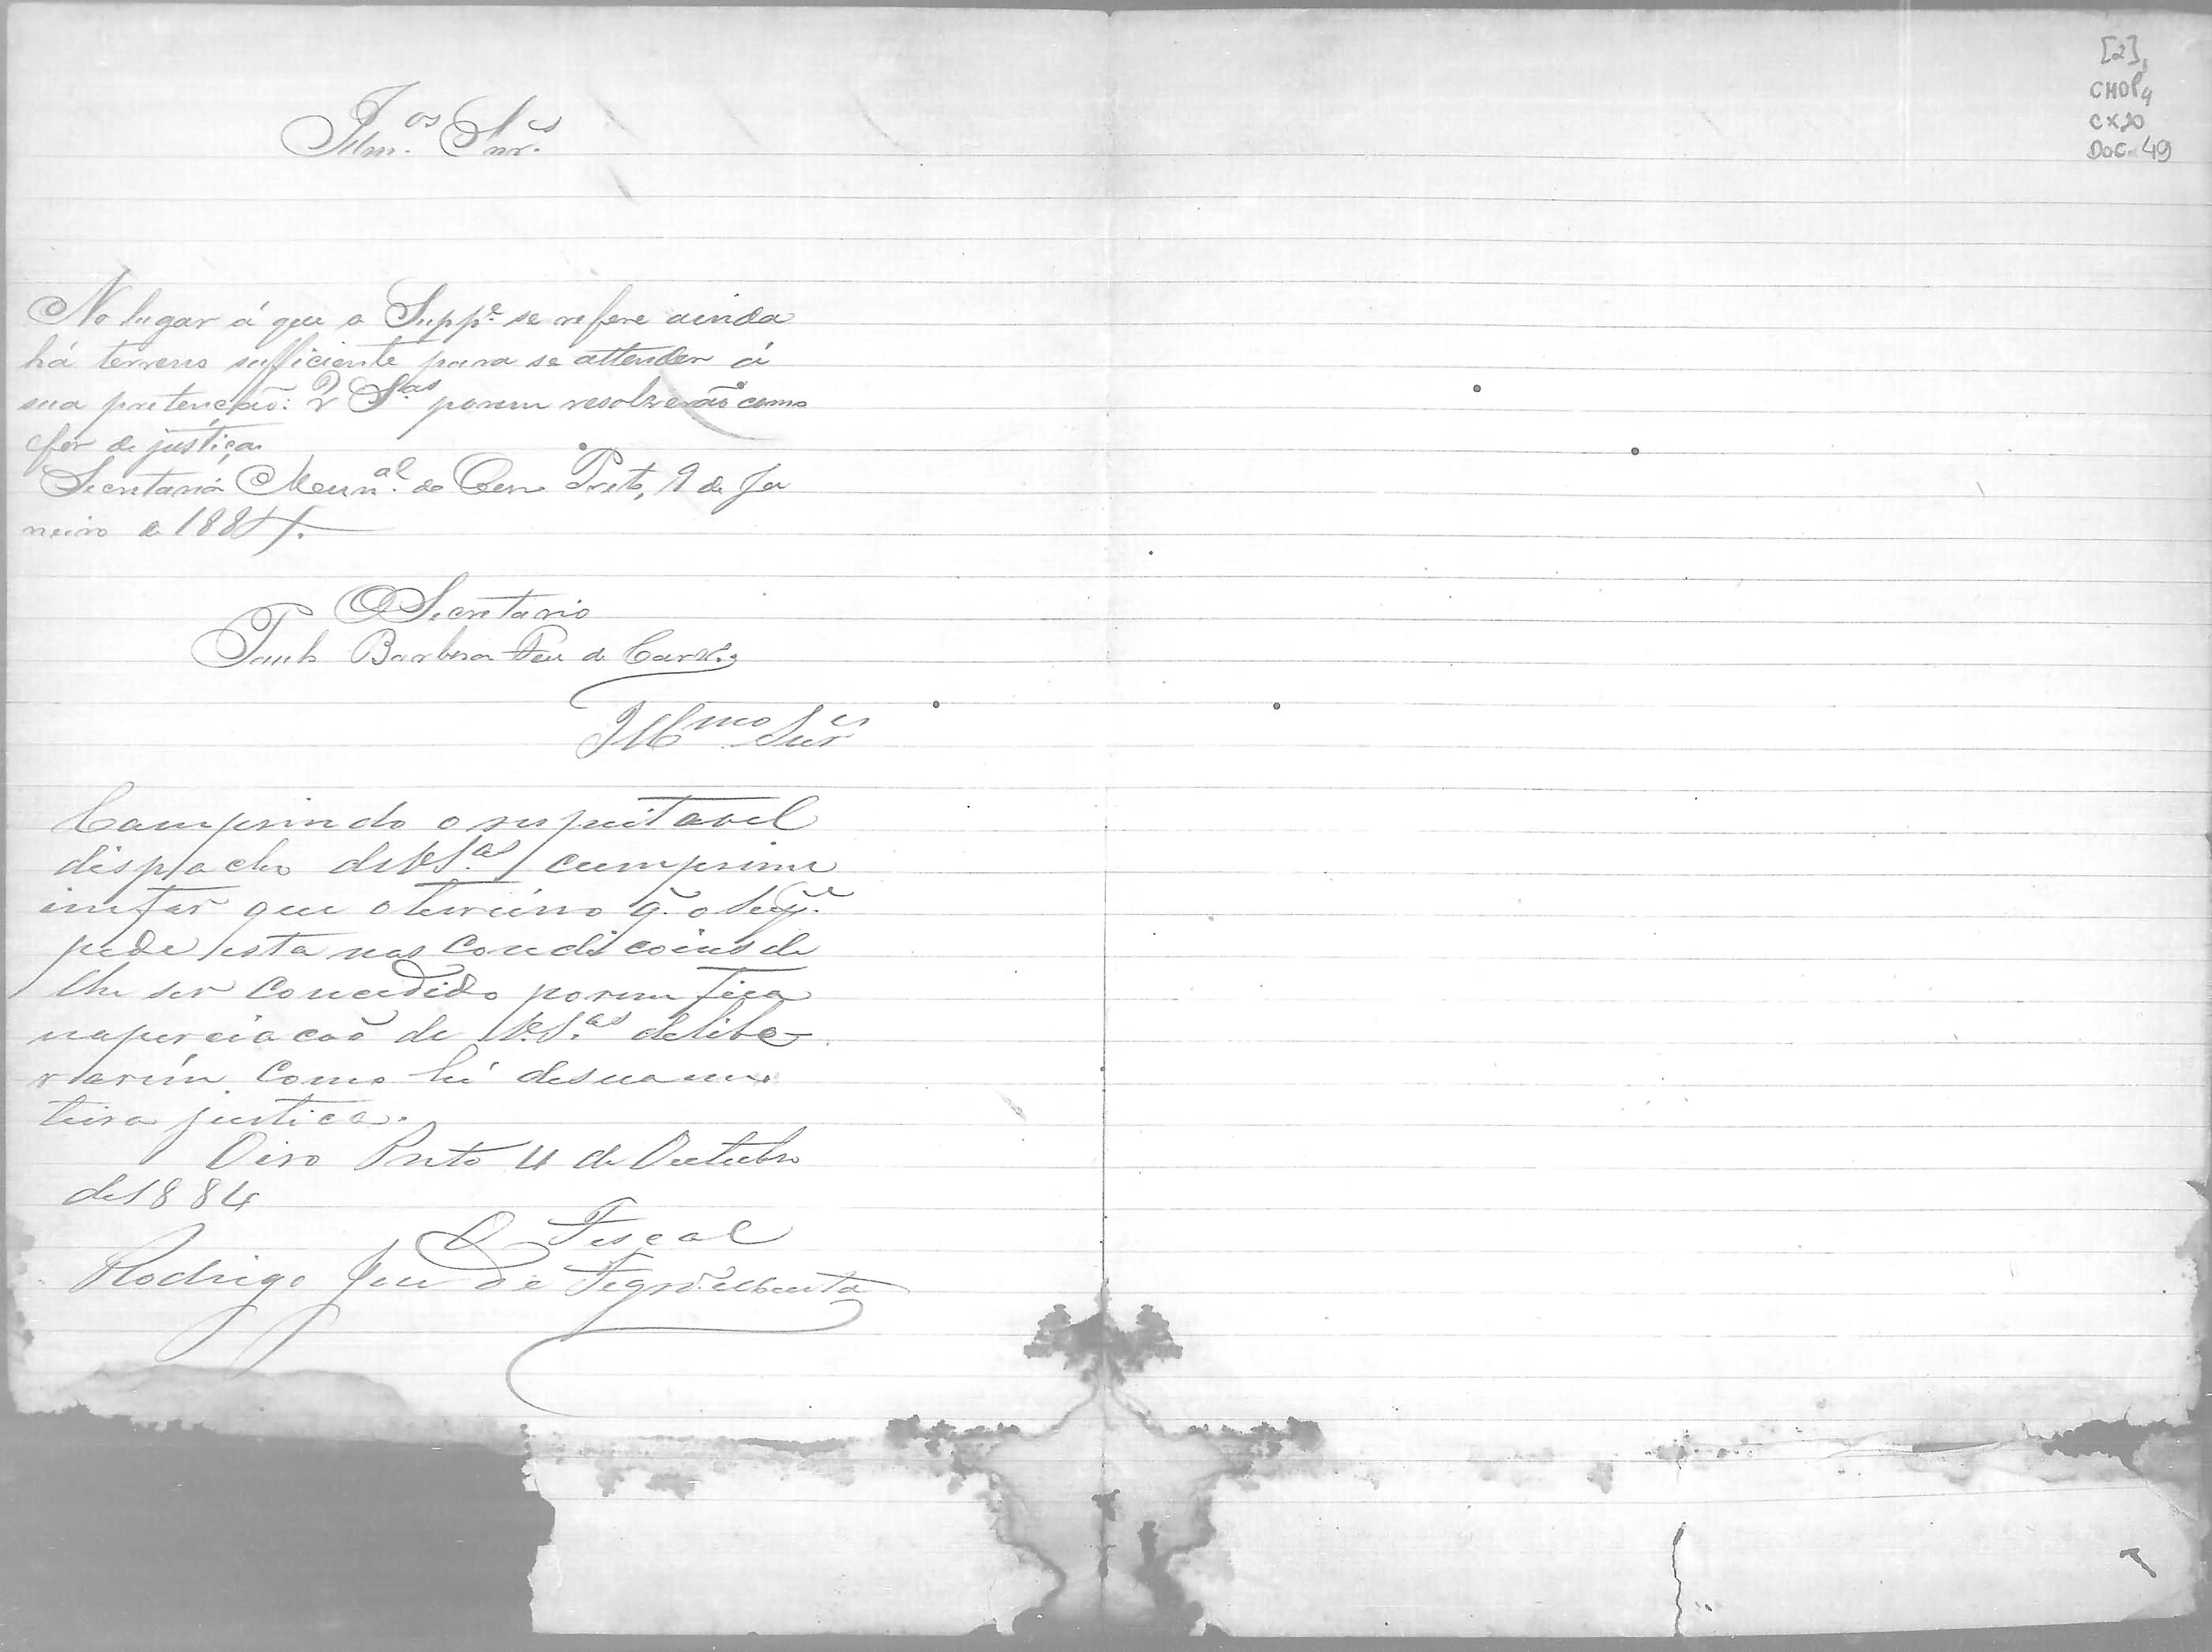 Illm.os Snr.es
No lugar á que o Supp.e se refere ainda
há terreno sufficiente para se attender á
sua pretenção: V S.as porem resolverão como
for de justiça
Secretaria Mun.al do Ouro Preto, 9 de Ja
neiro de 1884.
O Secretario
Paulo Barbosa Feu de Carv.o
Illmo Snr es
Comprindo o respeitavel
dispacho de V.S.as cumprime
imfar que o terreino q. o Sup.e
pede esta nas condicoins de
lhe ser concedido porem fica
napereiacaõ de V.S.as delibe-
rarem como hé de sua em
teira justica.
Oiro Preto 4 de Outubro
de 1884
O Fiscal
Rodrigo José de Figrdo. Murta
[2]
CMOP
CX20
DOC. 49